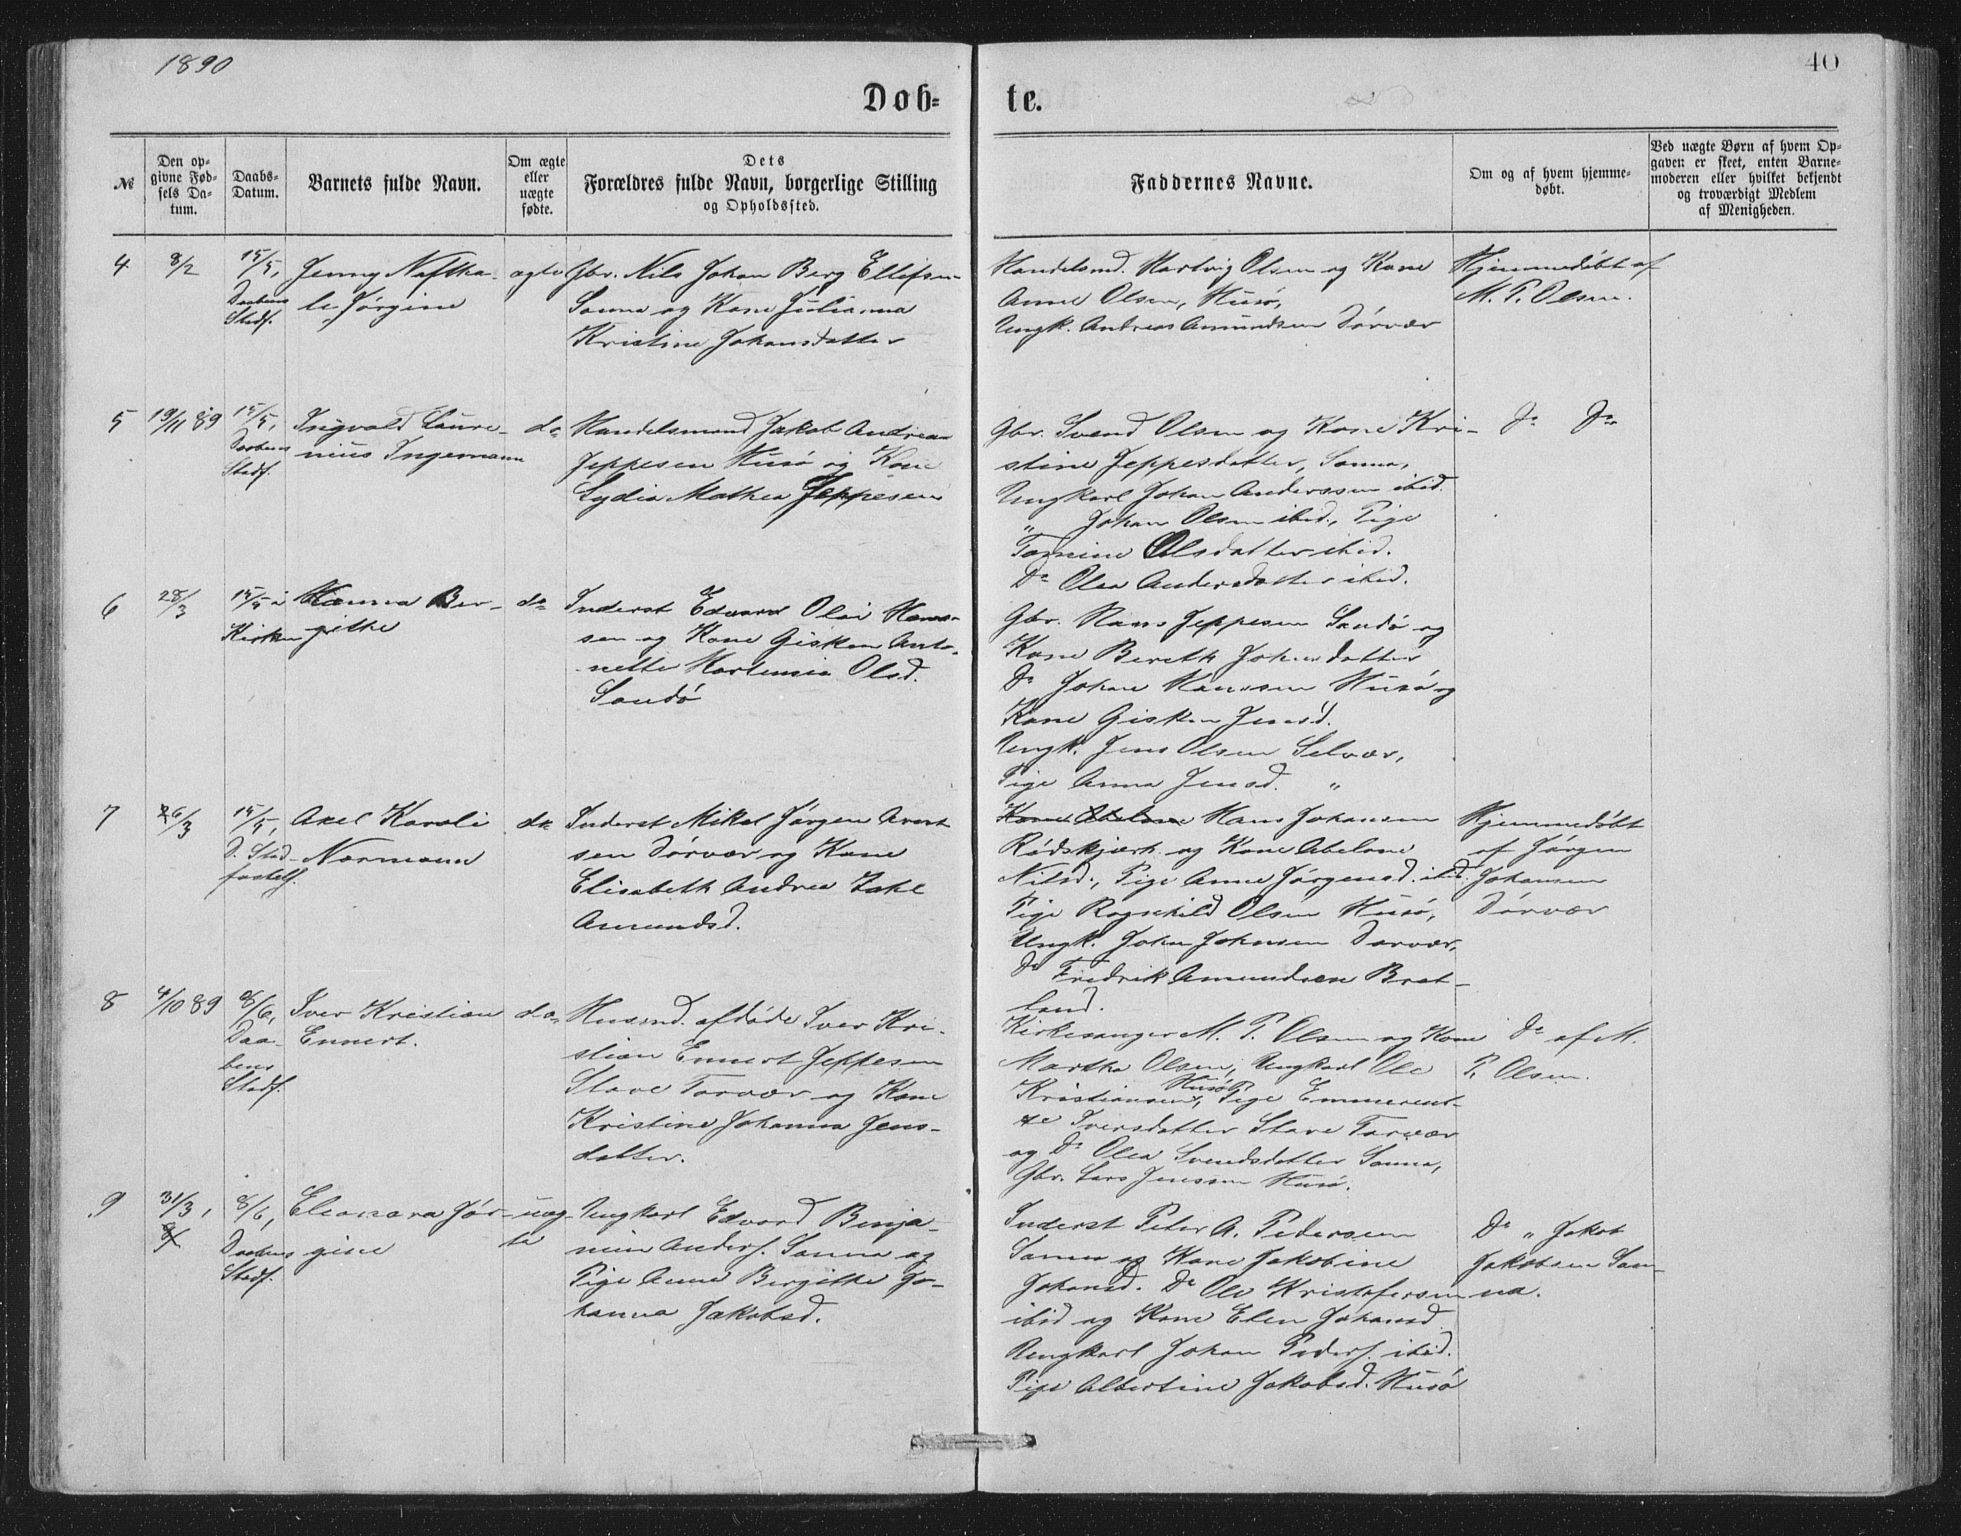 1890
40
Døb=
te.
№
Den op-
givne Fød-
sels Da-
tum.
Daabs-
Datum.
Barnets fulde Navn.
Om ægte
eller
uægte
fødte.
Dets
Forældres fulde Navn, borgerlige Stilling
og Opholdssted.
Faddernes Navne.
Om og af hvem hjemme-
døbt.
Ved uægte Børn af hvem Op-
gaven er skeet, enten Barne-
moderen eller hvilket bekjendt
og troværdigt Medlem
af Menigheden.
4
8/2
15/5,
Daabens
Stadf.
Jenny Naftha-
le Jørgine
ægte
Gbr. Nils Johan Berg Ellefsen
Sanna og Kone Julianna
Kristine Johansdatter
Handelsmd. Hartvig Olsen og Kone
Anne Olsen, Husø,
Ungk. Andreas Amundsen Dørvær
Hjemmedøbt af
M. P. Olsen.
5
19/11 89
15/5,
Daabens
Stadf.
Ingvald Laure-
nius Ingemann
do
Handelsmand Jakob Andreas
Jeppesen Husø og Kone
Lydia Mathea Jeppesen
Gbr. Svend Olsen og Kone Kri-
stine Jeppesdatter, Sanna,
Ungkarl Johan Anderssen ibid.
„ Johan Olsen ibid., Pige
Tomine Olsdatter ibid.
Do Olea Andersdatter ibid.
Do Do
6
28/3
15/5 i
Kirken
Hanna Ber-
githe
do
Inderst Edvard Olai Hans-
sen og Kone Gisken Anto-
nette Hortensia Olsd.
Sandø
Gbr. Hans Jeppesen Sandø og
Kone Bereth Johnsdatter,
Do Johan Hanssen Husø og
Kone Gisken Jensd.
Ungk. Jens Olsen Selvær,
Pige Anna Jensd. „
7
26/3
15/5,
D. Stad-
fæstels.
Axel Karoli
Normann
do
Inderst Mikal Jørgen Arent
sen Dørvær og Kone
Elisabeth Andrea Zahl
Amundsd.
Kone Abelone Hans Johansen
Rødskjær. og Kone Abelone
Nilsd., Pige Anne Jørgensd. ibid.
Pige Ragnhild Olsen Husø,
Ungk. John Johnsen Dørvær,
Do Fredrik Amundsen Brat-
land.
Hjemmedøbt
af Jørgen
Johansen
Dørvær
8
4/10 89
8/6,
Daa-
bens
Stadf.
Iver Kristian
Ennert.
do
Husmd. afdøde Iver Kri-
stian Ennert Jeppesen
Stave Torvær og Kone
Kristine Johanna Jens-
datter.
Kirkesanger M. P. Olsen og Kone
Martha Olsen, Ungkarl Ole
Kristiansen, Husø Pige Emmerent-
ze Iversdatter Stave Torvær
og Do Olea Svendsdatter Sanna,
Gbr. Lars Jenssen Husø.
Do af M.
P. Olsen.
9
31/3,
8/6,
Daabens
Stadf.
Eleonora Jør-
gine
uæg-
te
Ungkarl Edvard Benja-
min Anders. Sanna og
Pige Anna Bergithe Jo-
hanna Jakobsd.
Inderst Peter A. Pedersen
Sanna og Kone Jakobine
Johansd. Do Ole Kristofersen
ibid og Kone Elen Johansd
Ungkarl Johan Peders. ibid.
Pige Albertine Jakobsd. Husø
Do „ Jakob
Jakobsen San-
na.